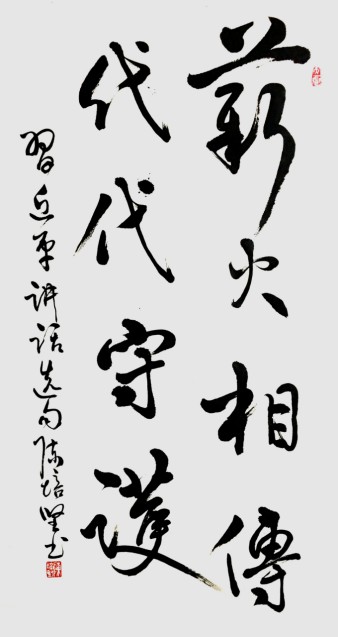 薪火相傳
代代守護
習近平講話選句 陳培堅書